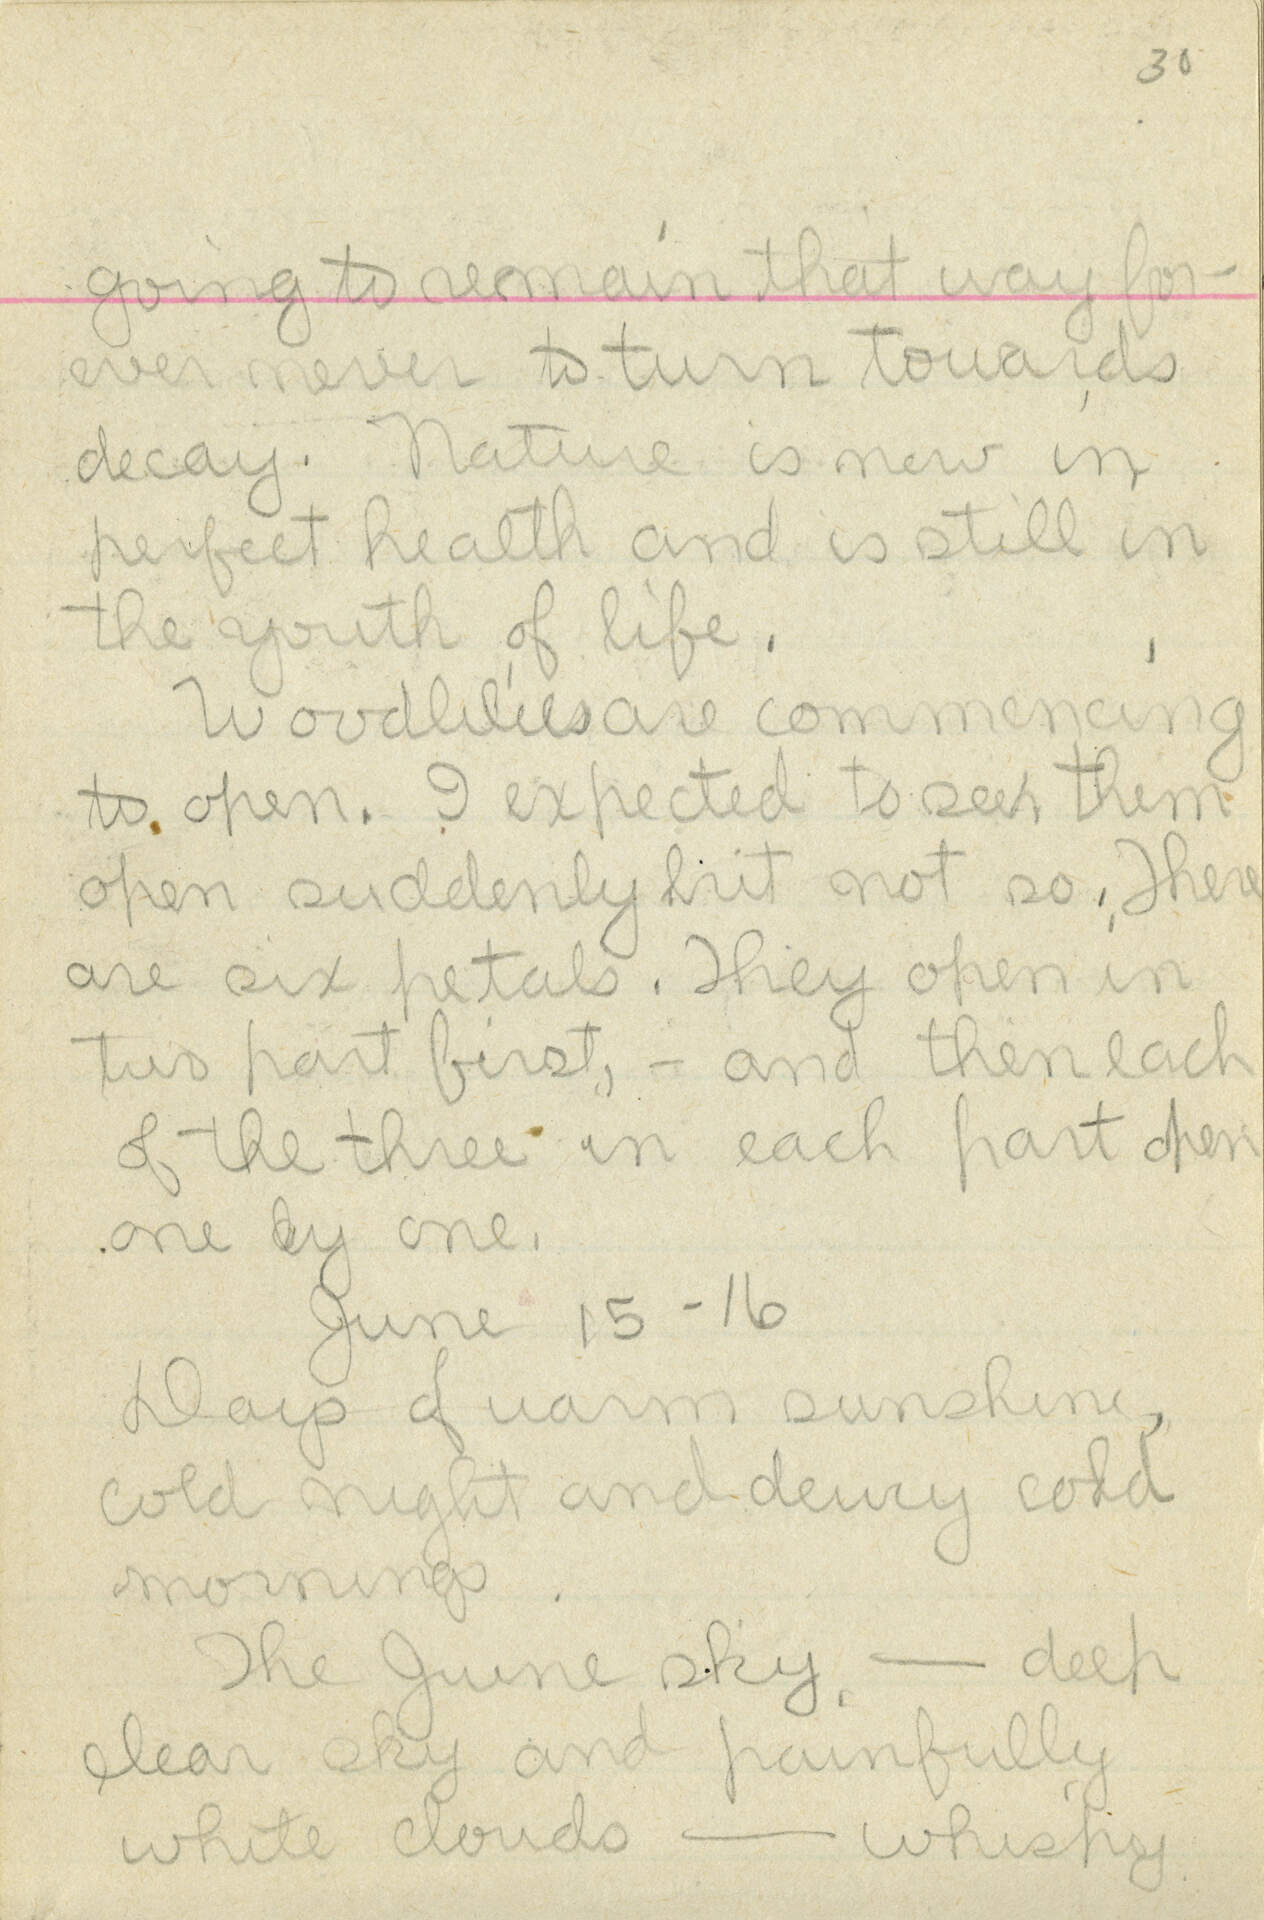 30
going to remain that way for-
ever never to turn towards
decay. Nature is now in
perfect health and is still in
the youth of life.
Woodlilies are commencing
to open. I expected to see them
open suddenly but not so. There
are six petals. They open in
two part first, - and then each
of the three in each part open
one by one.
June 15-16
Days of warm sunshine,
cold night and dewy cold
mornings.
The June sky, — deep
clear sky and painfully
white clouds — whispy